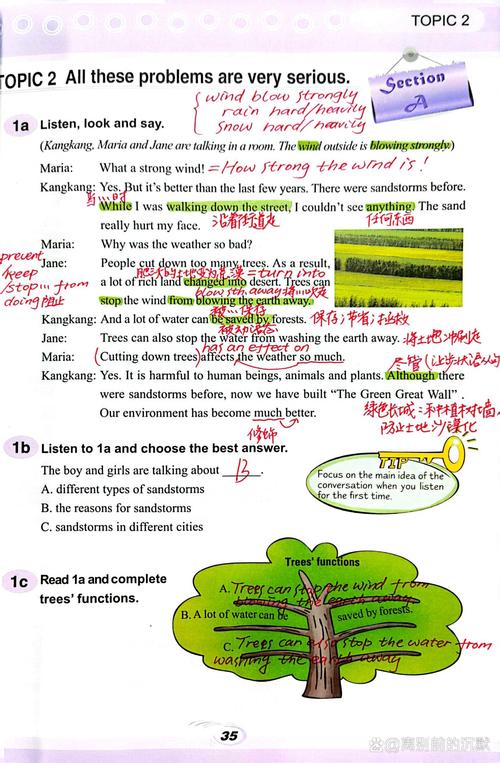 TOPIC 2
TOPIC 2 All these problems are very serious.
Section
A
wind blow strongly
rain hard/heavily
snow hard/heavily
1a Listen, look and say.
(Kangkang, Maria and Jane are talking in a room. The wind outside is blowing strongly.)
Maria: What a strong wind! = How strong the wind is!
Kangkang: Yes. But it's better than the last few years. There were sandstorms before.
当…时
While I was walking down the street, I couldn't see anything. The sand
really hurt my face. 沿着街道走 任何东西
Maria: Why was the weather so bad?
prevent
/keep
/stop... from
doing 阻止
Jane: People cut down too many trees. As a result,
肥沃的土地变为荒漠 = turn into
a lot of rich land changed into desert. Trees can
blow sth. away 将…吹走
stop the wind from blowing the earth away.
被…保存
Kangkang: And a lot of water can be saved by forests. 保存;节省;拯救
被动语态
Jane: Trees can also stop the water from washing the earth away. 将土地冲刷走
has an effect on
Maria: (Cutting down trees) affects the weather so much.
尽管(让步状语从句
Kangkang: Yes. It is harmful to human beings, animals and plants. Although there
were sandstorms before, now we have built "The Green Great Wall".
Our environment has become much better.
修饰
绿色长城:一种植树墙
防止土地沙漠化
1b Listen to 1a and choose the best answer.
The boy and girls are talking about B.
A. different types of sandstorms
B. the reasons for sandstorms
C. sandstorms in different cities
TIP
Focus on the main idea of the
conversation when you listen
for the first time.
1c Read 1a and complete
trees' functions.
Trees' functions
A. Trees can stop the wind from
blowing the earth away
B. A lot of water can be saved by forests.
C. Trees can also stop the water from
washing the earth away
35
@离别前的沉默